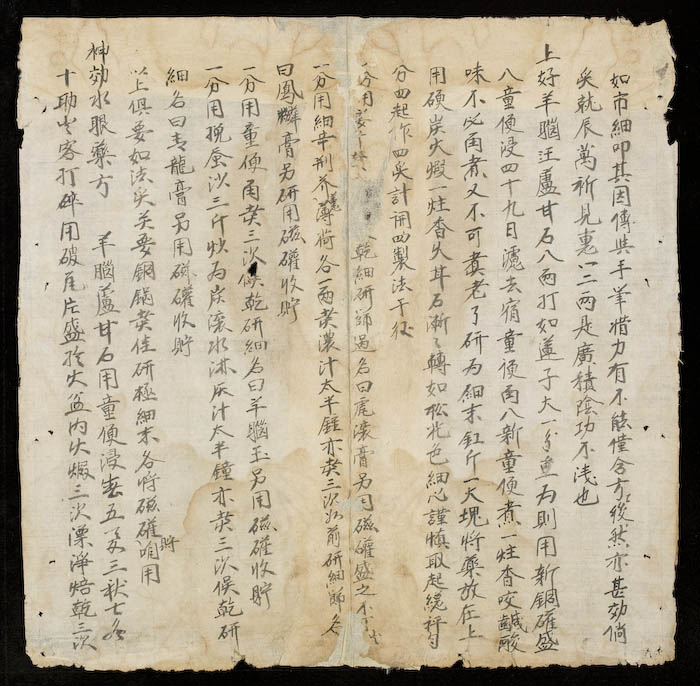 如市細叩其因傳與手筆惜力有不能僅合方後然亦甚効倘
矣就辰萬祈見惠一二兩是廣積陰功不浅也
上好羊腦汪蘆甘石八兩打如蓮子大一分重為則用新銅礶盛
八童便浸四十九日濾去宿童便再八新童便煮一炷香咬鹹酸
味不必再煮又不可煑老了研為細末缸斤一大塊將藥放在上
用硬炭火煆一炷香久甘石漸々轉如松花色細心謹慎取起緩秤勻
分四起作四具計開四製法于後
一分用 乾細研篩過名曰 膏另用磁礶盛之
一分用細辛荆芥薄荷各一兩煑濃汁大半鍾亦煑三次如前研細篩名
曰鳳麟膏另研用磁礶收貯
一分用童便再煑三次候乾研細名曰羊腦玉另用磁礶收貯
一分用挽蚕沙三斤炒為炭滾水淋灰汁大半鐘亦煑三次候乾研
細名曰青龍膏另用磁礶收貯
以上俱要如法矣关要銅鍋煑佳研極細末各將磁礶貯用
神効水眼藥方 羊腦蘆甘石用童便浸春五夏三秋七冬
十助火客打碎用破瓦片盛於火盆內火煆三次漂淨焙乾三次